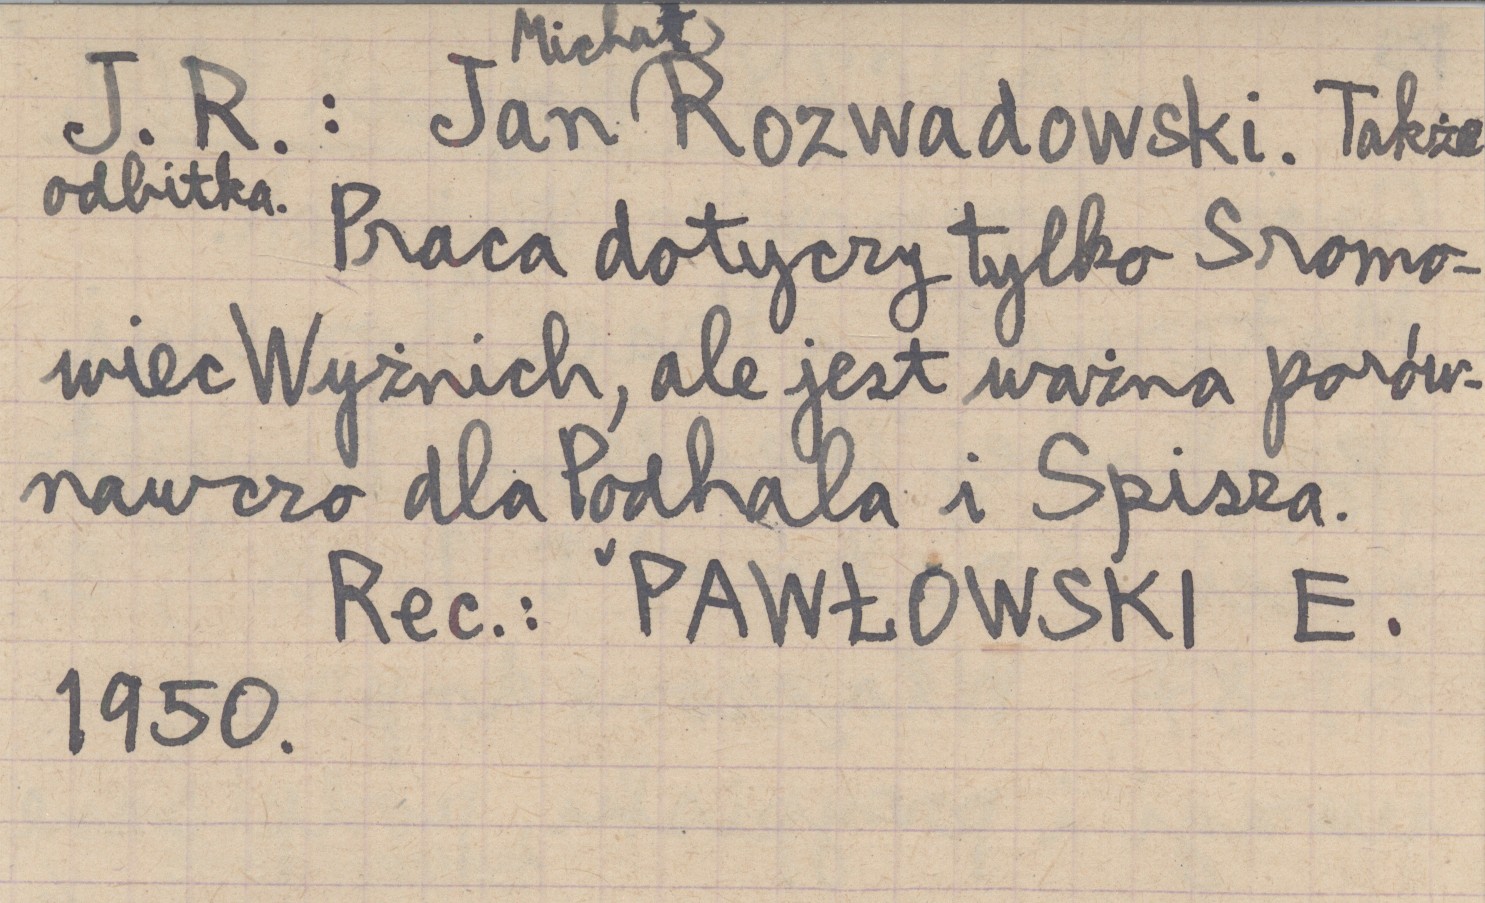 Michał
J. R.: Jan Rozwadowski. Także
odbitka.
Praca dotyczy tylko Sromo-
wiec Wyżnich, ale jest ważna porów-
nawczo dla Podhala i Spisza.
Rec.: PAWŁOWSKI E.
1950.